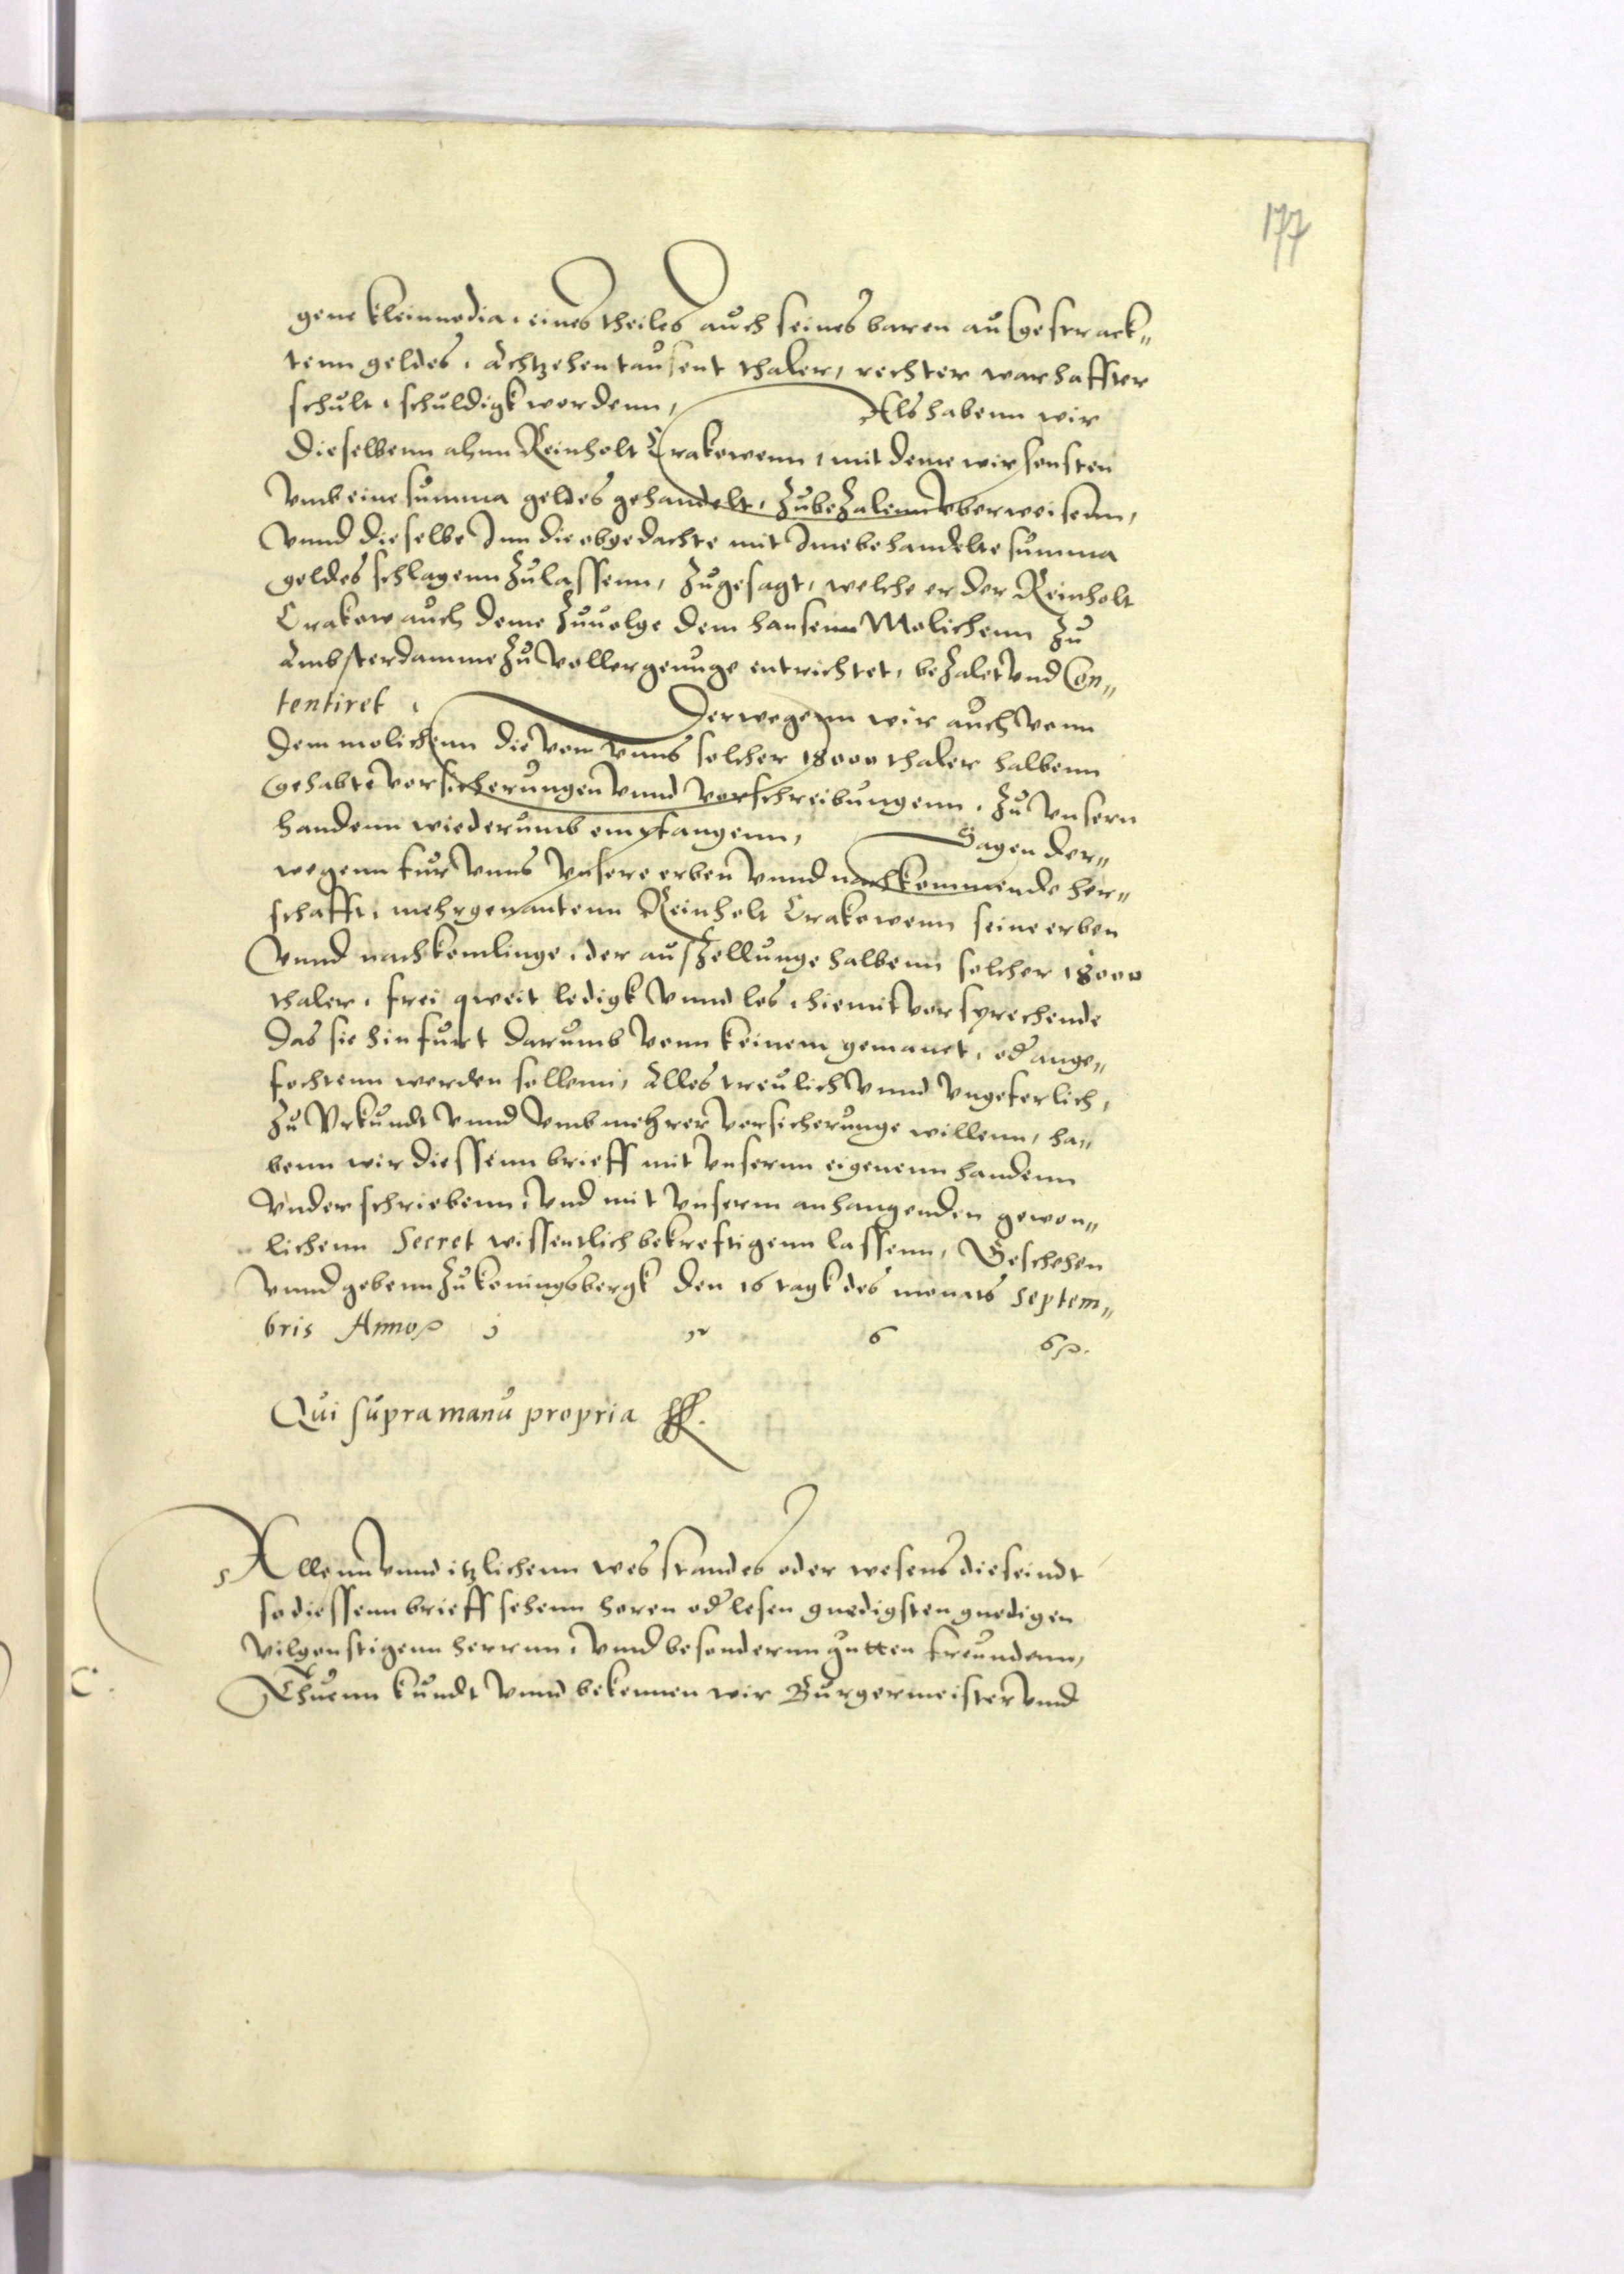 177
gene kleinnodia, eines theiles auch seines baren ausgestrack„
tenn geldes, Achtzehentausent thaler, rechter warhaffter
schult, schuldigk wordenn, Als habenn wir
dieselbenn ahnn Reinholt Crakowenn, mit deme wir sonsten
vmb eine summa geldes gehandelt, zubezalenn vberweisenn,
vnnd dieselbe Inn die obgedachte mit Ime behandelte summa
geldes schlagenn zulassenn, zugesagt, welche er der Reinholt
Crakow auch deme zuuolge dem hansenn Molichenn zu
Ambsterdamme zu voller genuge entrichtet, bezalet vnd Con„
tentiret, Derwegenn wir auch vonn
dem molichenn die von vnns solcher 18000 thaler halbenn
gehabte vorsicherungen vnnd vorschreibungenn, zu vnsern
handenn wiederumb empfangenn, Sagen der„
wegenn fur vnns vnsere erben vnnd nachkommende her„
schafft, mehrgenantenn Reinholt Crakowenn seine erben
vnnd nachkomlinge, der auszellunge halbenn solcher 18000
thaler, frei qweit ledigk vnnd los, hiemit vorsprechende
das sie hinfurt darumb vonn keinem gemanet, od ange„
fochtenn werden sollenn, Alles treulich vnnd vngeferlich,
zu Vrkundt vnnd vmb mehrer vorsicherunge willenn, ha„
benn wir diessenn brieff mit vnsernn eigenenn handenn
vnderschriebenn, vnd mit vnserm anhangenden gewon„
lichenn Secret wissentlich bekreftigenn lassenn, Geschehen
vnnd gebenn zu koningsbergk den 16 tagk des monats Septem„
bris Anno 1 5 6 6.
Qui supra manu propria
Allenn vnnd itzlichenn wes standes oder wesens die seindt
so diessenn brieff sehenn horen od lesen gnedigsten gnedigen
vilgonstigenn herrnn, vnnd besondernn gutten freundenn,
C.
Thuenn kundt vnnd bekennen wir Burgermeister vnnd